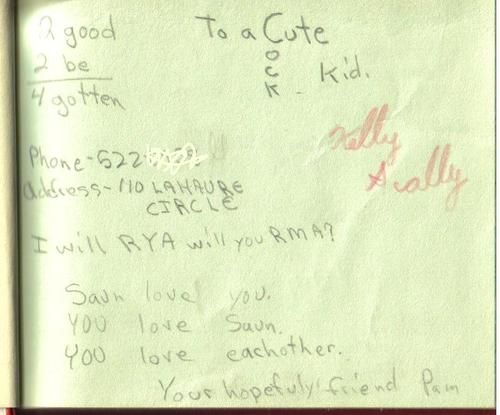 2 good
2 be
4 gotten
To a Cute
O
C
K - Kid.
Kelly
Scally
Phone-522
address-110 LAHAURE
CIRCLE
I will RYA will you RMA?
Saun love you.
YOU love Saun.
YOU love eachother.
Your hopefuly friend Pam